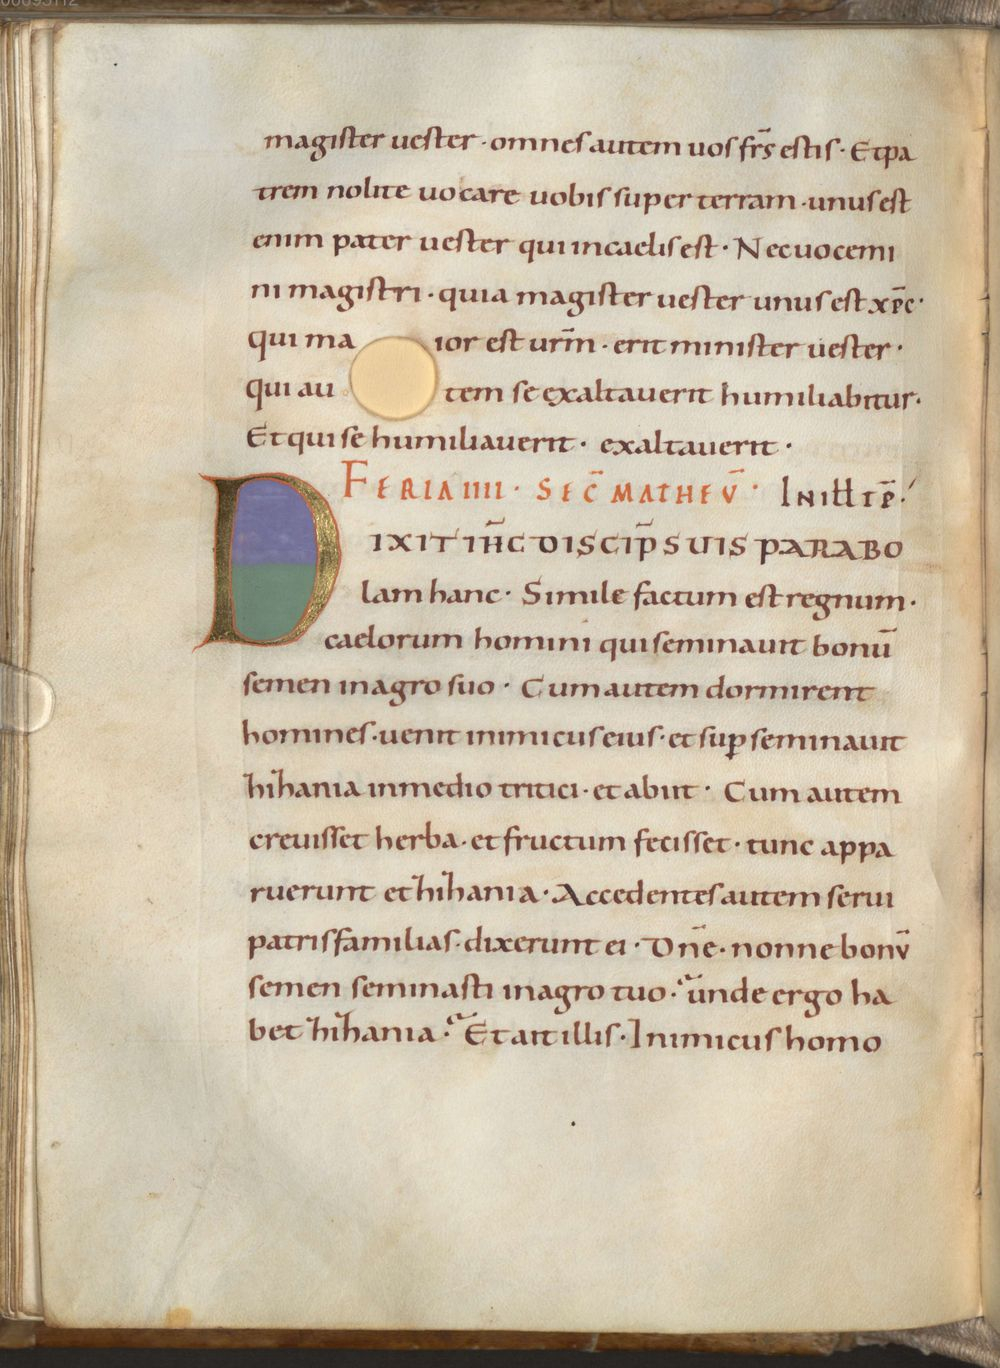 magister uester · omnes autem uos fr̄s estis · Et pa
trem nolite uocare uobis super terram · unus est
enim pater uester qui in caelis est · Nec uocemi
ni magistri · quia magister uester unus est xp̄c ·
qui ma ior est ur̄m · erit minister uester ·
qui au tem se exaltauerit humiliabitur ·
Et qui se humiliauerit · exaltauerit ·
FERIA IIII · SEC̄ MATHEV̄ · IN ILL TP̄ ·
DIXIT IH̄C DISCIP̄ SUIS PARABO
lam hanc · Simile factum est regnum ·
caelorum homini qui seminauit bonū
semen in agro suo · Cum autem dormirent
homines · uenit inimicus eius · et suꝑ seminauit
hihania in medio tritici · et abiit · Cum autem
creuisset herba · et fructum fecisset · tunc appa
ruerunt et hihania · Accedentes autem serui
patris familias · dixerunt ei · Dn̄e · nonne bonū
semen seminasti in agro tuo · unde ergo ha
bet hihania · Et ait illis · Inimicus homo